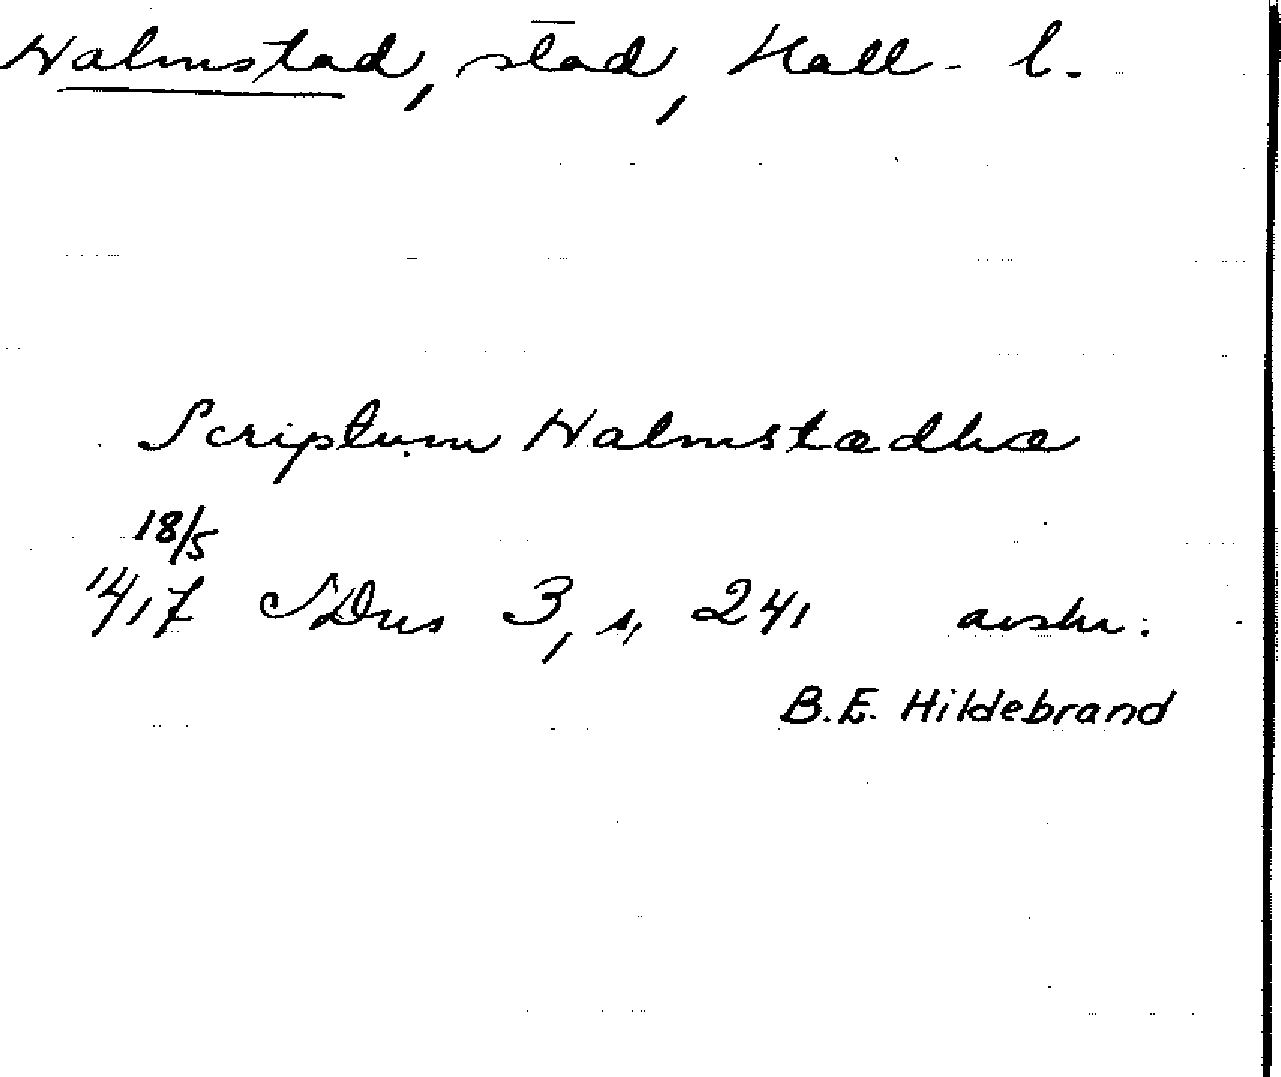 Halmstad, stad, Hall. l.
Scriptum Halmstædhæ
18/5
1417 SDns 3, s, 241 avskr.
B.E. Hildebrand